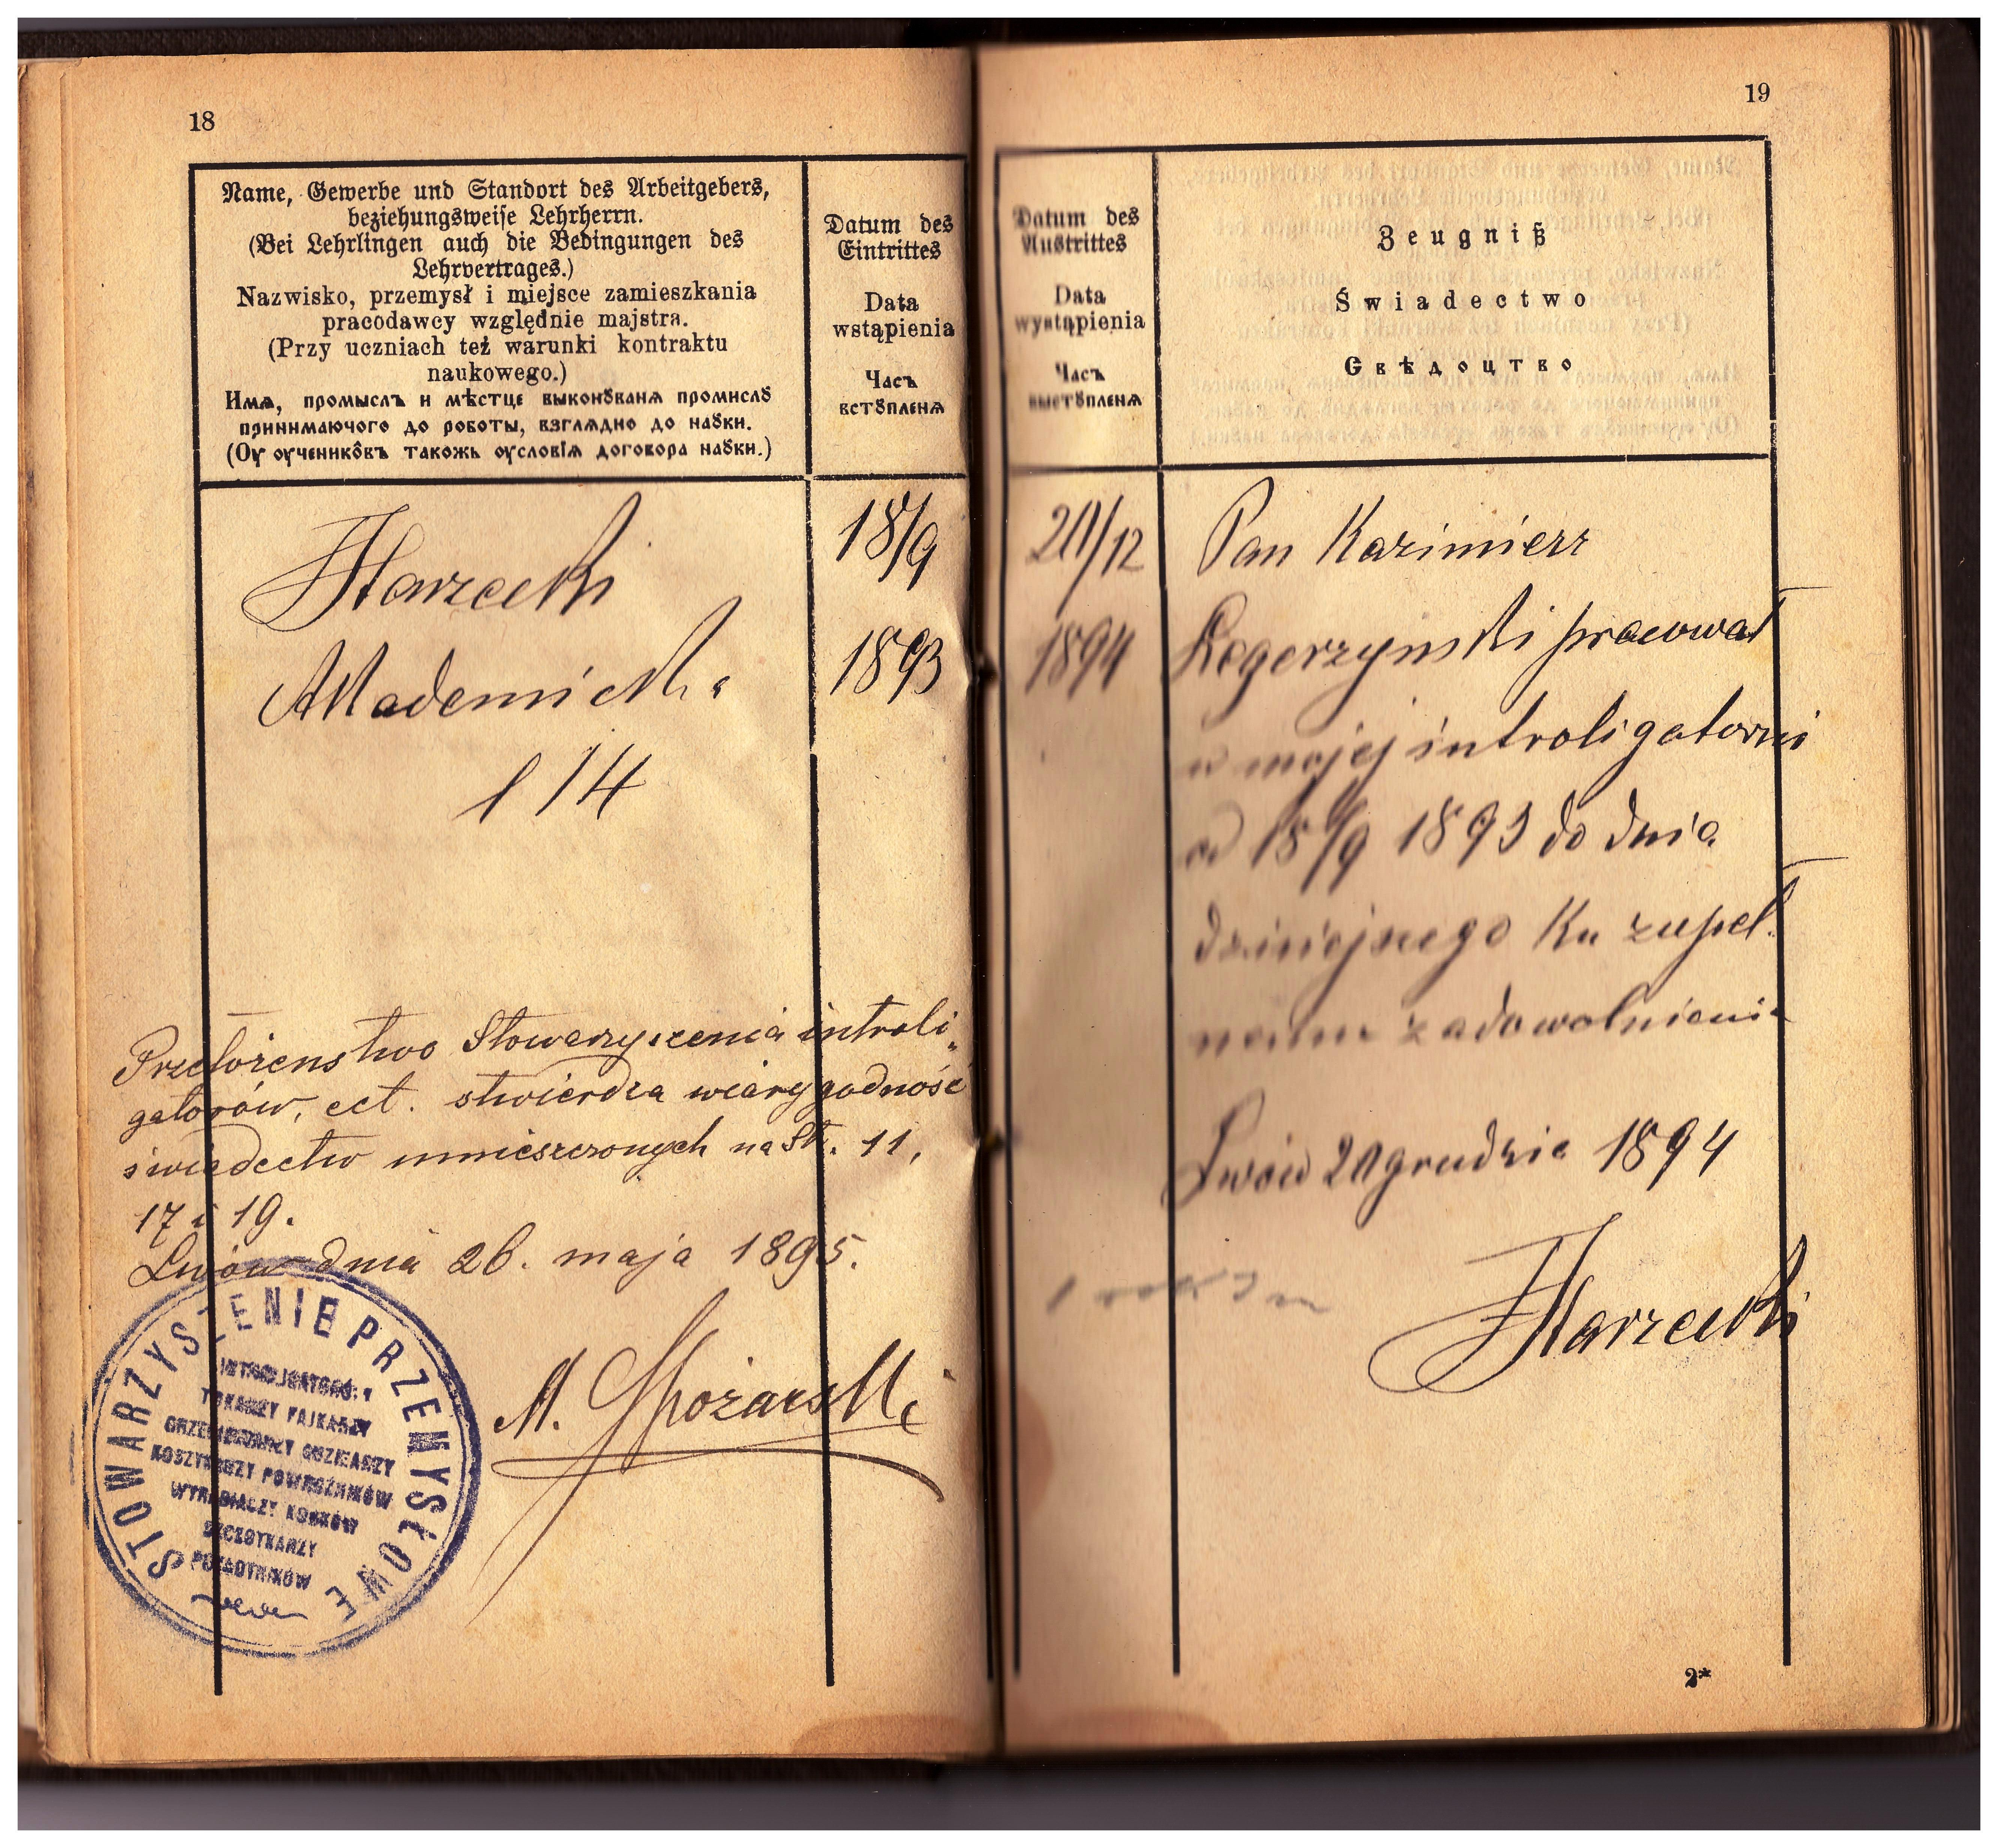 18
Name, Gewerbe und Standort des Arbeitgebers,
beziehungsweise Lehrherrn.
(Bei Lehrlingen auch die Bedingungen des
Lehrvertrages.)
Nazwisko, przemysł i miejsce zamieszkania
pracodawcy względnie majstra.
(Przy uczniach też warunki kontraktu
naukowego.)
Имѧ, промыслъ и мѣстце выконꙋванѧ промислꙋ
принимаючого до роботы, взглѧдно до наꙋки.
(Оу оучениковъ такожь оусловїѧ договора наꙋки.)
Datum des
Eintrittes
Data
wstąpienia
Часъ
встꙋпленѧ
Marzecki
Akademicka
l 14
18/9
1893
Przełożeństwo Stowarzyszenia introli„
gatorów, ect. stwierdza wiarygodność
świadectw umieszczonych na Str. 11,
17 i 19.
Lwów dnia 26. maja 1895.
M. Spożarski
STOWARZYSZENIE PRZEMYSŁOWE
INTROLIGATORÓW
TOKARZY FAJKARZY
GRZEBIENIARZY GUZIKARZY
KOSZYKARZY POWROŹNIKÓW
WYRABIACZY KORKÓW
SZCZOTKARZY
POZŁOTNIKÓW
19
Datum des
Austrittes
Data
wystąpienia
Часъ
выстꙋпленѧ
Zeugniß
Świadectwo
Свѣдоцтво
20/12
1894
Pan Kazimierz
Legerzynski pracował
w mojej introligatorni
od 18/9 1893 do dnia
dzisiejszego Ku zupeł-
nemu zadowolnieniu
Lwów 20 grudzia 1894
1 rok 3 m
Marzecki
2*